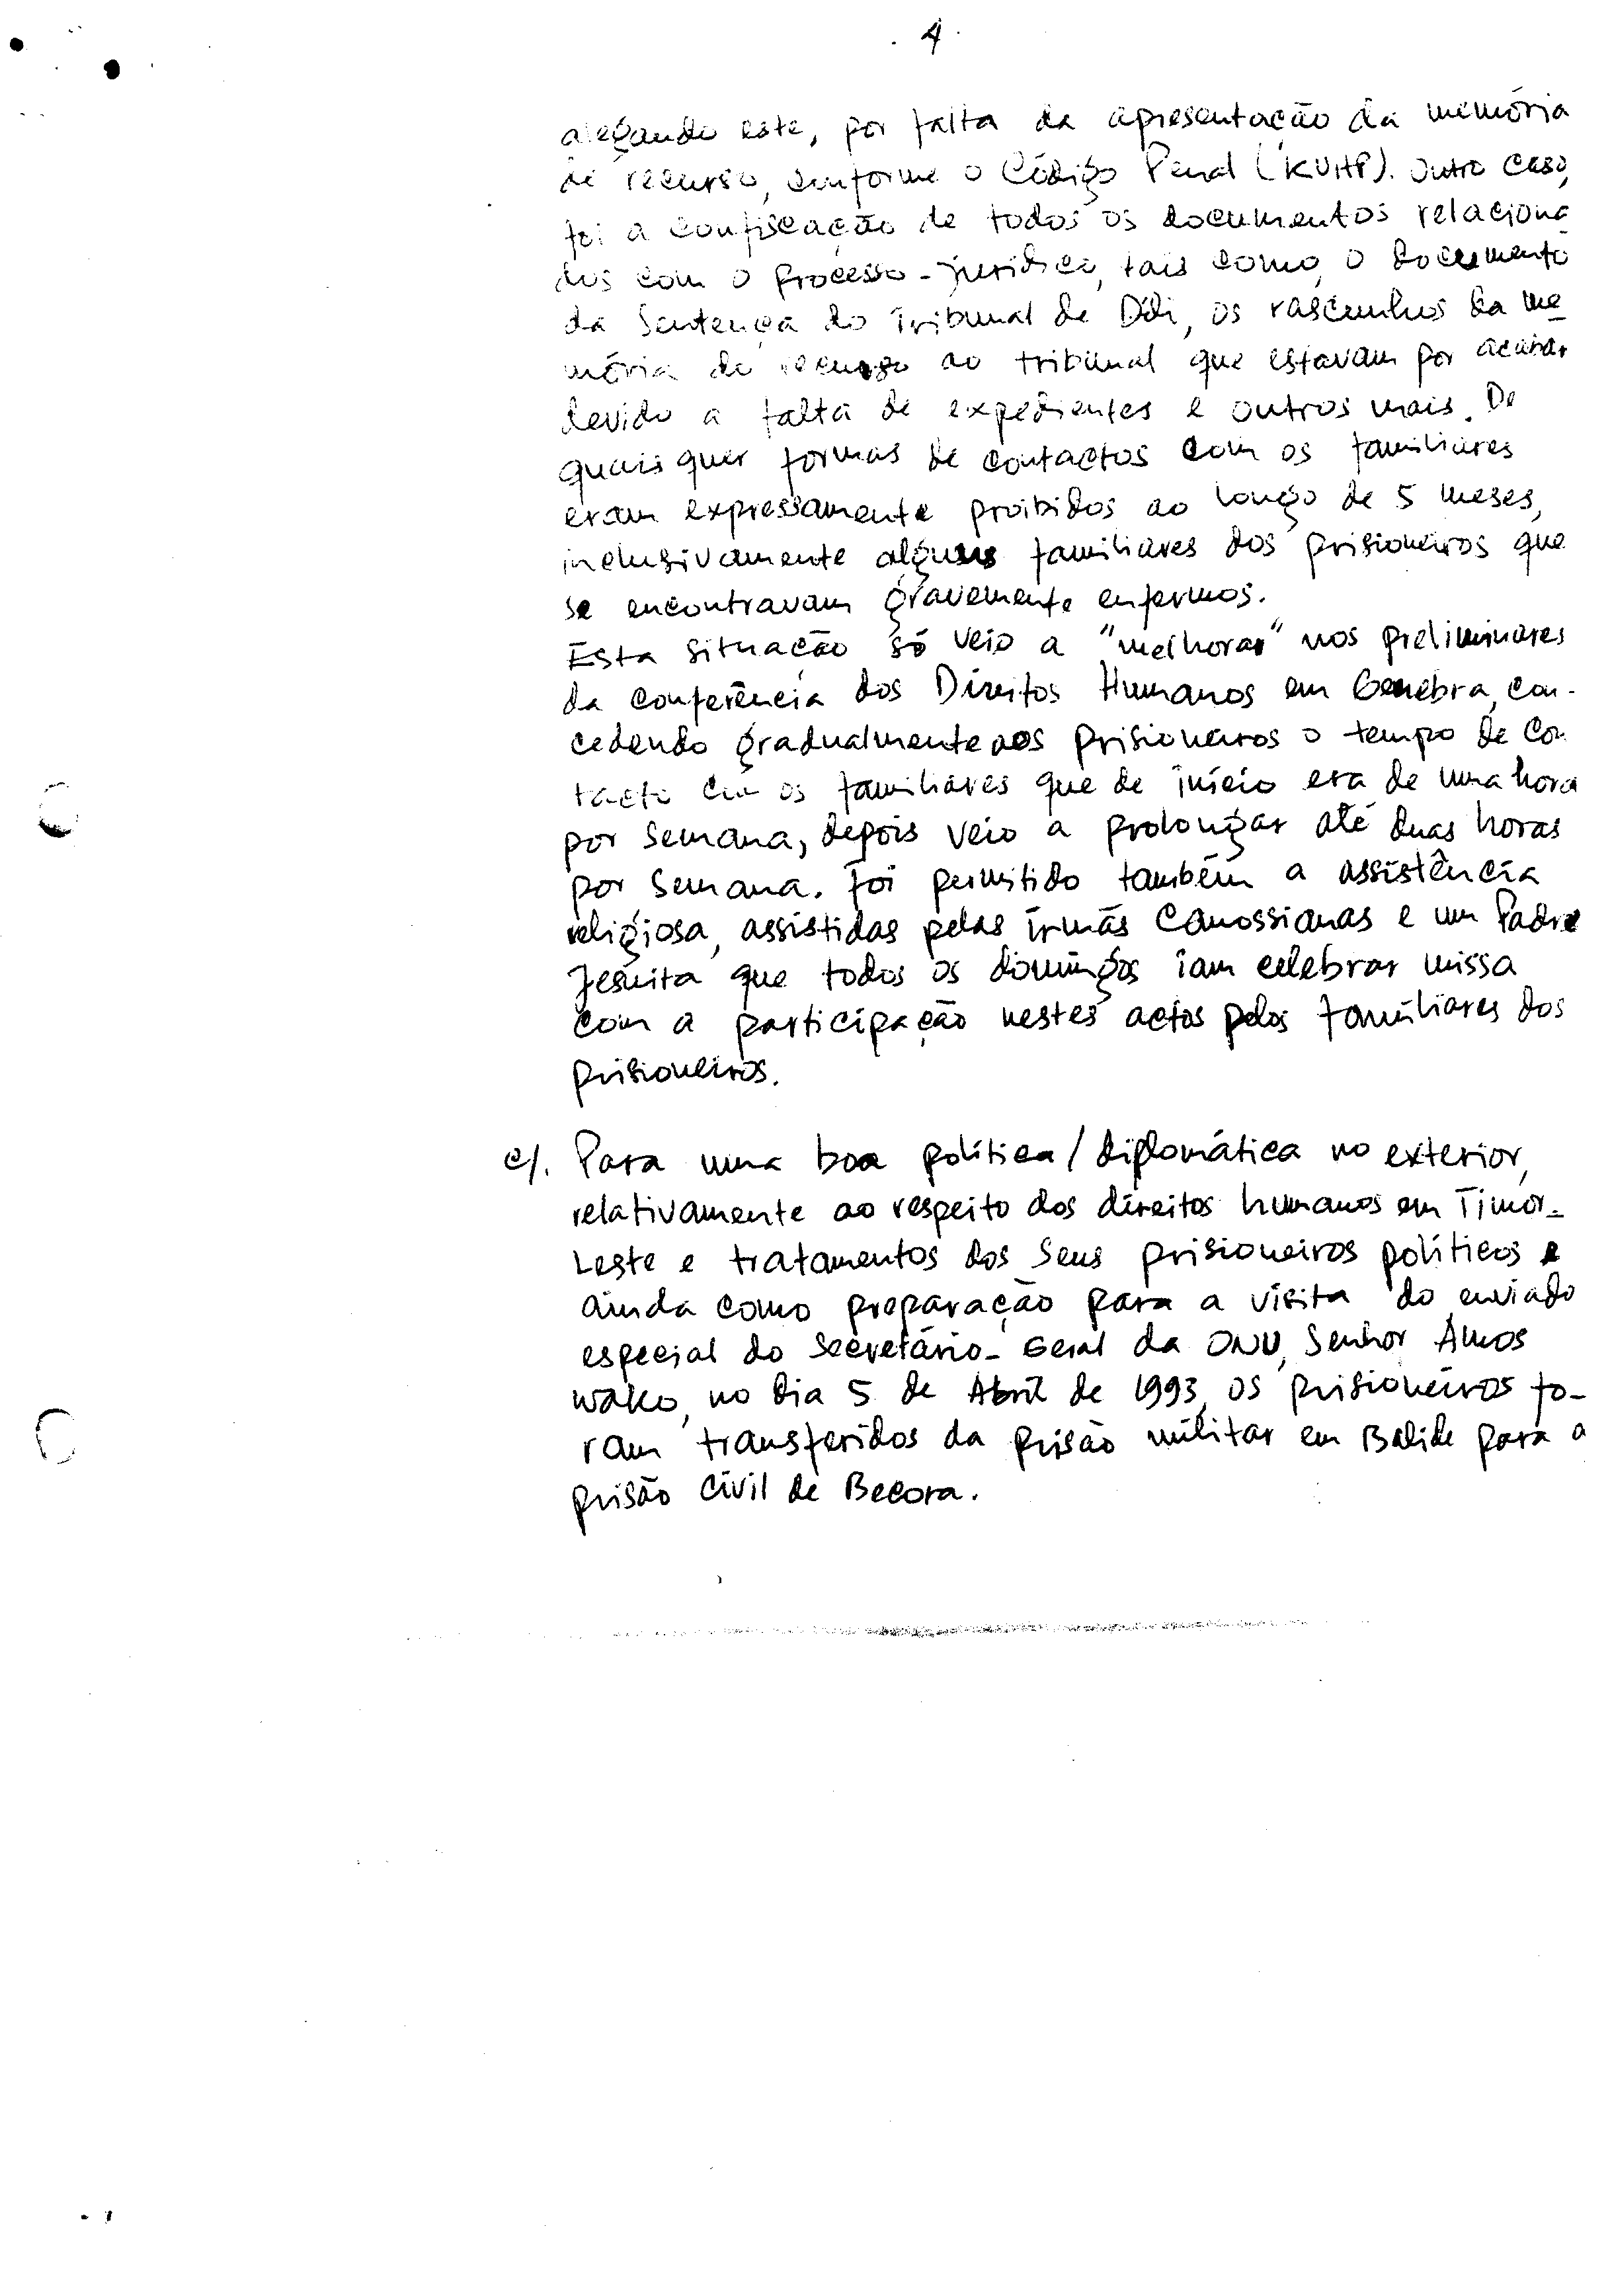 . 4 .
alegando este, por falta da apresentação da memória
de recurso, conforme o Código Penal (KUHP). Outro caso,
foi a confiscação de todos os documentos relaciona
dos com o processo-jurídico, tais como, o documento
da Sentença do Tribunal de Díli, os rascunhos da me
mória de recurso ao tribunal que estavam por acabar
devido a falta de expedientes e outros mais. De
quais quer formas de contactos com os familiares
eram expressamente proibidos ao longo de 5 meses,
inclusivamente alguns familiares dos prisioneiros que
se encontravam gravemente enfermos.
Esta situação só veio a "melhorar" nos preliminares
da conferência dos Direitos Humanos em Genebra, con-
cedendo gradualmente aos prisioneiros o tempo de con
tacto com os familiares que de início era de uma hora
por semana, depois veio a prolongar até duas horas
por semana. Foi permitido também a assistência
religiosa, assistidas pelas irmãs Canossianas e um Padre
Jesuita que todos os domingos iam celebrar missa
com a participação nestes actos pelos familiares dos
prisioneiros.
c/. Para uma boa política/diplomática no exterior,
relativamente ao respeito dos direitos humanos em Timor-
Leste e tratamentos dos seus prisioneiros políticos e
ainda como preparação para a visita do enviado
especial do Secretário-Geral da ONU, Senhor Amos
Wako, no dia 5 de Abril de 1993, os prisioneiros fo-
ram transferidos da prisão militar em Balide para a
prisão civil de Becora.